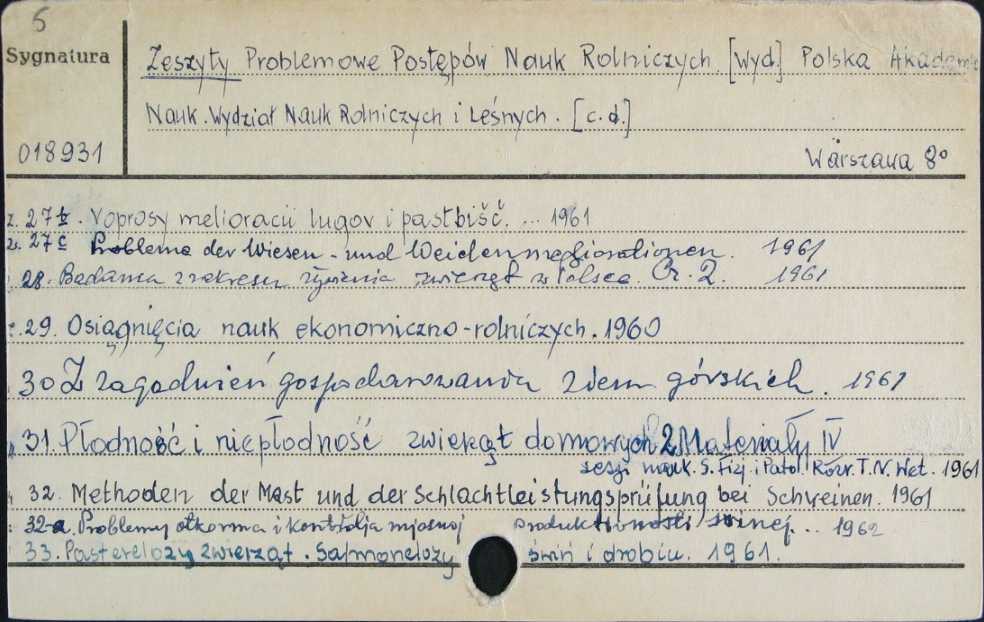 5
Sygnatura
018931
Zeszyty Problemowe Postępów Nauk Rolniczych [Wyd] Polska Akademia
Nauk. Wydział Nauk Rolniczych i Leśnych. [c.d.]
Warszawa 8º
z. 27b. Voprosy melioracii lugov i pastbišč. ... 1961
z. 27c Probleme der Wiesen- und Weidenmeliorationen. 1961
28. Badania z zakresu żywienia zwierząt w Polsce. Cz. 2. 1961
z. 29. Osiągnięcia nauk ekonomiczno-rolniczych. 1960
30 Z zagadnień gospodarowania ziem górskich. 1961
31. Płodność i niepłodność zwierząt domowych 2 Materiały IV
sesji nauk. S. Fizj i Patol Rozr. T.N. Wet. 1961
32. Methoden der Mast und der Schlachtleistungsprüfung bei Schweinen. 1961
32-a. Problemy otkorma i kontrolja mjasnoj produktivnosti svinej... 1962
33. Pasterelozy zwierząt. Salmonelozy świń i drobiu. 1961.